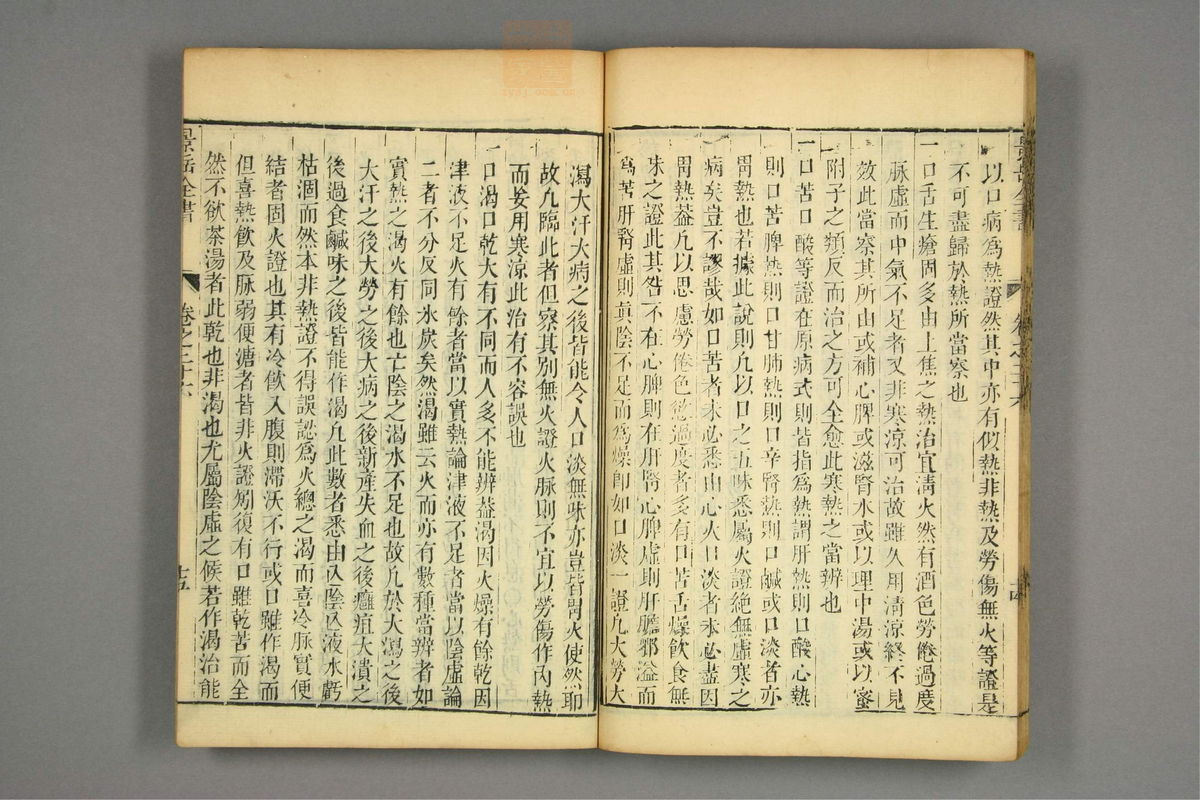 以口病為熱證然其中亦有似熱非熱及勞傷無火等證是
不可盡歸於熱所當察也
一口舌生瘡固多由上焦之熱治宜清火然有酒色勞倦過度
脉虛而中氣不足者又非寒涼可治故雖久用清涼終不見
效此當察其所由或補心脾或滋腎水或以理中湯或以蜜
附子之類反而治之方可全愈此寒熱之當辨也
一口苦口酸等證在原病式則皆指為熱謂肝熱則口酸心熱
則口苦脾熱則口甘肺熱則口辛腎熱則口鹹或口淡者亦
胃熱也若據此說則凡以口之五味悉屬火證絶無虛寒之
病矣豈不謬哉如口苦者未必悉由心火口淡者未必盡因
胃熱葢凡以思慮勞倦色慾過度者多有口苦舌燥飲食無
味之證此其咎不在心脾則在肝腎心脾虛則肝膽邪溢而
為苦肝腎虛則真陰不足而為燥即如口淡一證凡大勞大
景岳全書
卷之二十六
十四
瀉大汗大病之後皆能令人口淡無味亦豈皆胃火使然耶
故凡臨此者但察其別無火證火脉則不宜以勞傷作內熱
而妄用寒涼此治有不容誤也
一口渴口乾大有不同而人多不能辨葢渴因火燥有餘乾因
津液不足火有餘者當以實熱論津液不足者當以陰虛論
二者不分反同氷炭矣然渴雖云火而亦有數種當辨者如
實熱之渴火有餘也亡陰之渴水不足也故凡於大瀉之後
大汗之後大勞之後大病之後新產失血之後癰疽大潰之
後過食鹹味之後皆能作渴凡此數者悉由亾陰亾液水虧
枯涸而然本非熱證不得誤認為火總之渴而喜冷脉實便
結者固火證也其有冷飲入腹則滯沃不行或口雖作渴而
但喜熱飲及脉弱便溏者皆非火證矧復有口雖乾苦而全
然不欲茶湯者此乾也非渴也尤屬陰虛之候若作渴治能
景岳全書
卷之二十六
十五